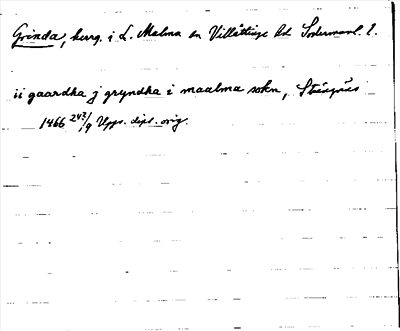 Grinda, herrg. i L. Malma sn Villåttinge hd Södermanl. l.
ii gaardha j gryndha i maalma sokn, Strängnäs
1466 24⅔/9 Upps. dipl. orig.